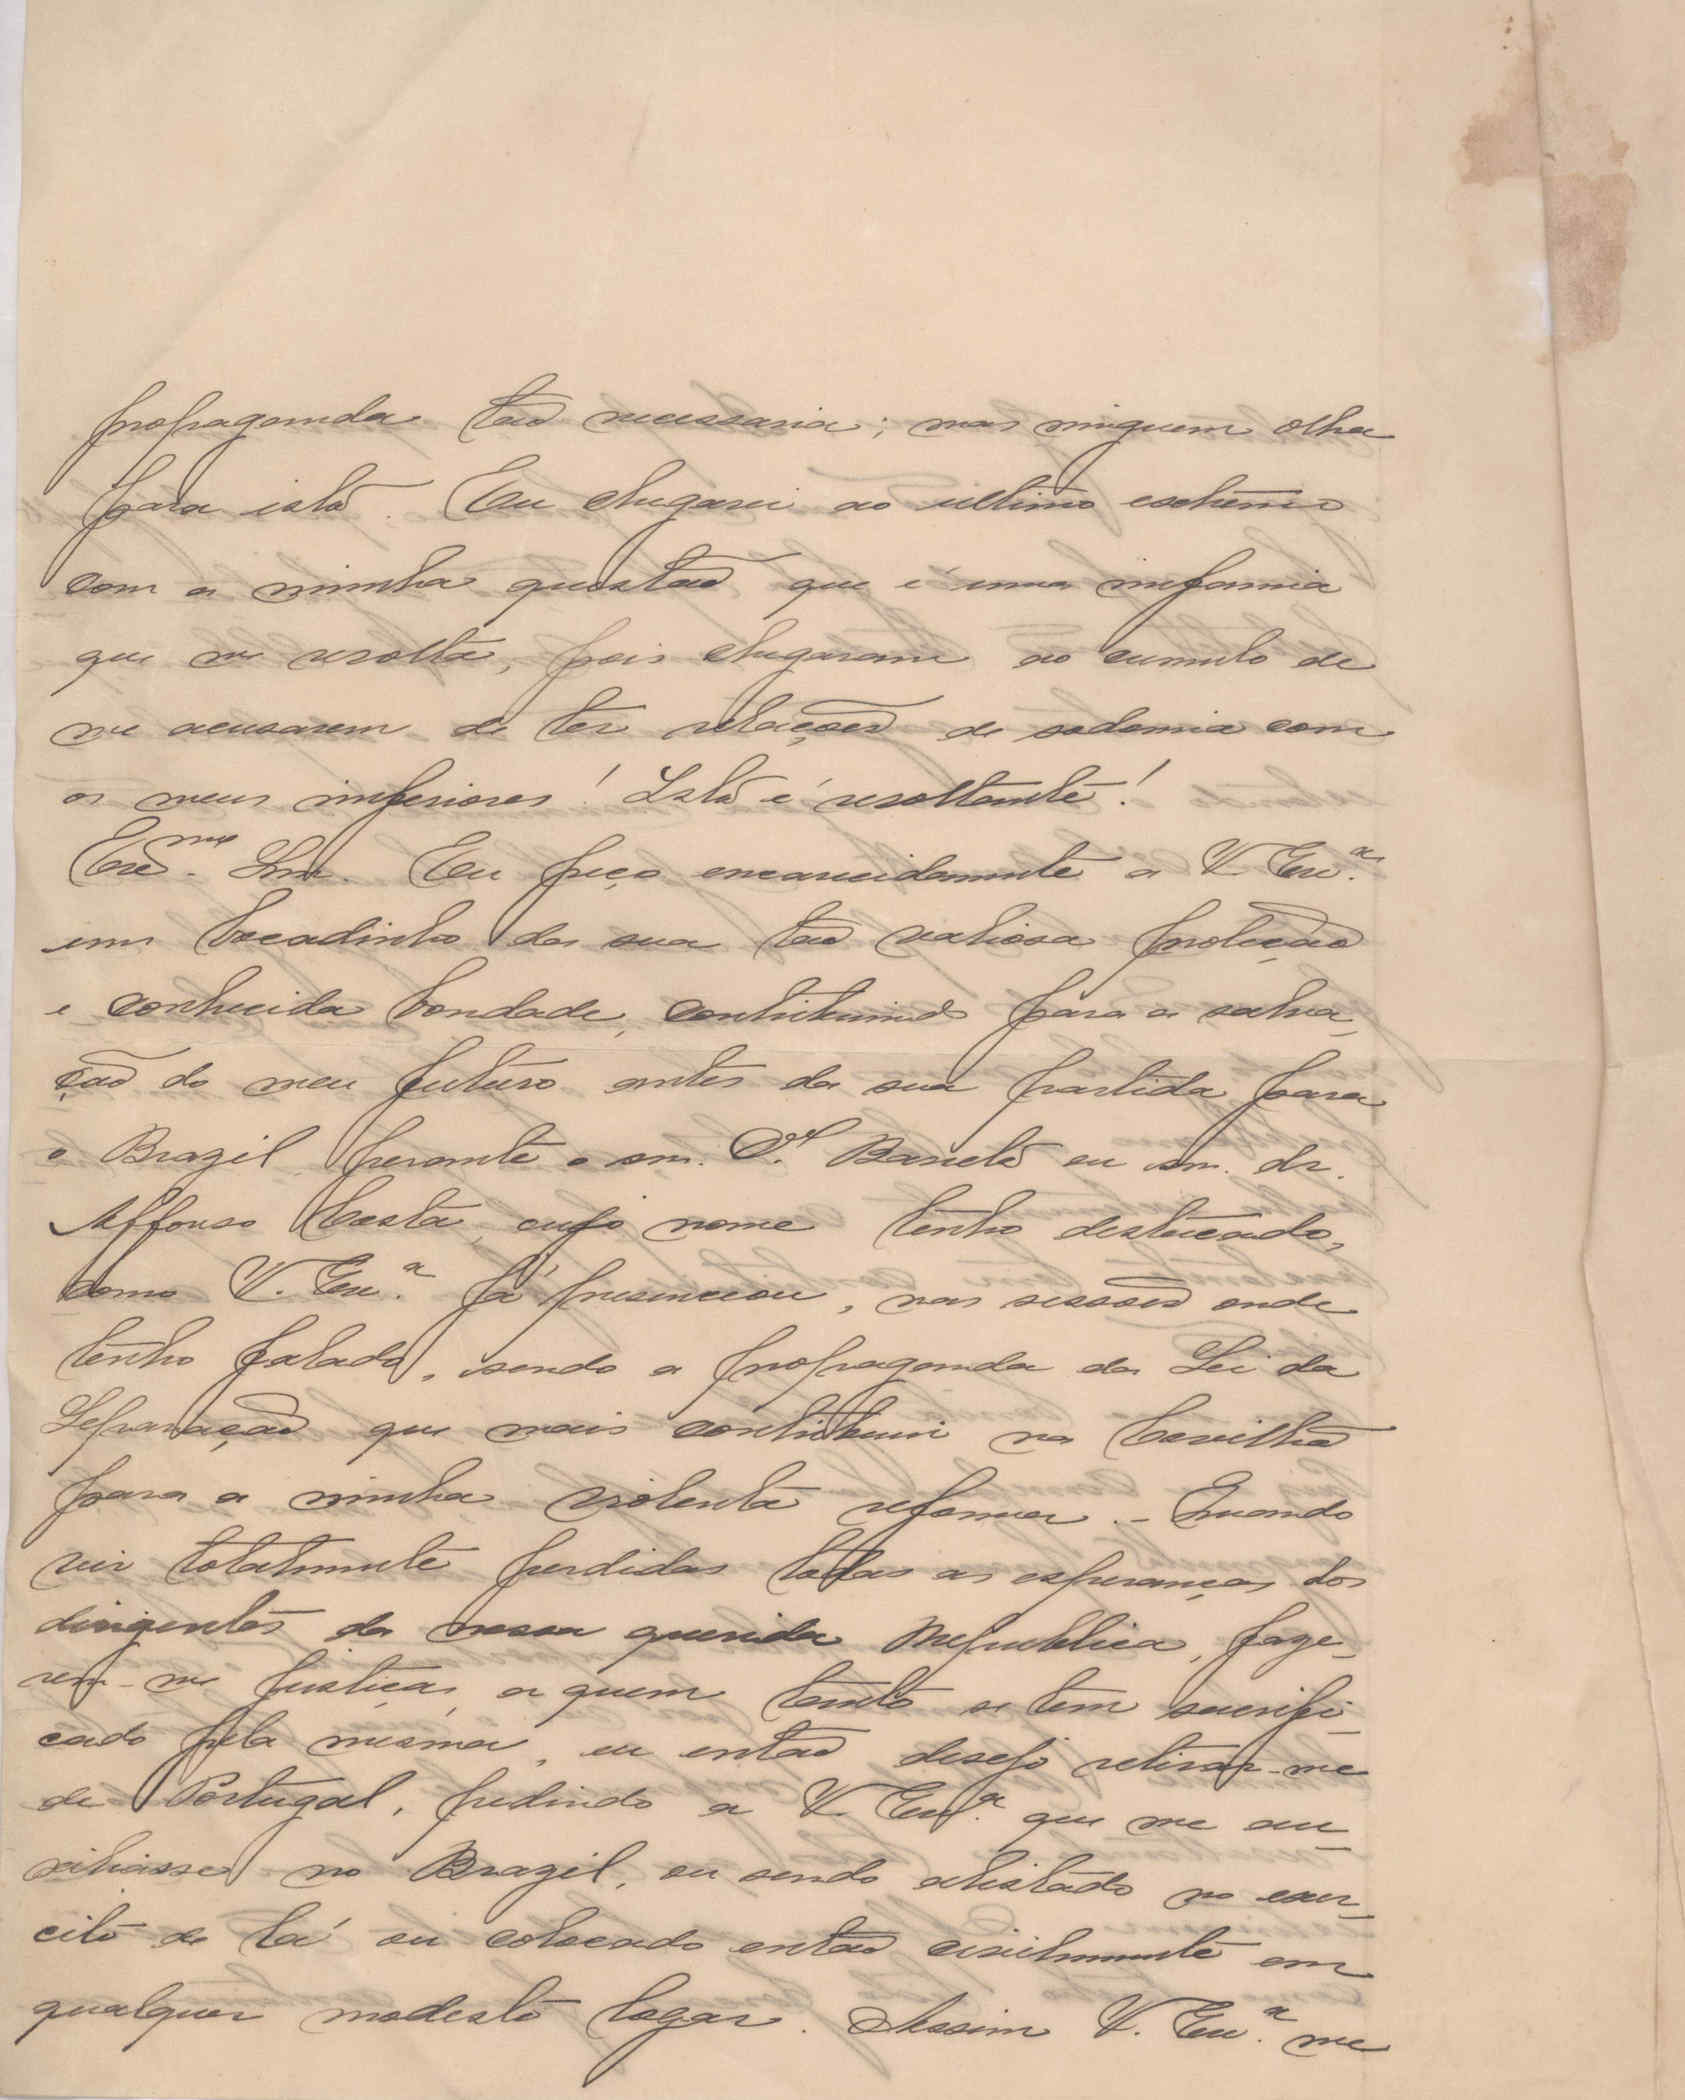 propaganda tão necessaria; mas ninguem olha
para isto. Eu chegarei ao ultimo extremo
com a minha questão que é uma infamia
que me revolta, pois chegaram ao cumulo de
me acusarem de ter relações de sodomia com
os meus inferiores! Isto é revoltante!
Exmo. Snr. Eu peço encarecidamente a V. Exa.
um bocadinho da sua tão valiosa proteção
e conhecida bondade, contribuindo para a salva,
ção do meu futuro antes da sua partida para
o Brazil perante o snr. Barreto ou snr. dr.
Affonso Costa, cujo nome tenho destacado,
como V. Exa. já presenceou, nas sessões onde
tenho falado, sendo a propaganda da Lei da
Separação que mais contribuiu na Covilhã
para a minha violenta reforma. - Quando
vir totalmente perdidas todas as esperanças dos
dirigentes da nossa querida Republica, faze-
rem-me justiça, a quem tanto se tem sacrifi-
cado pela mesma, eu então desejo retirar-me
de Portugal, pedindo a V. Exa. que me au-
xiliasse no Brazil, ou sendo alistado no exer-
cito de lá ou colocado então civilmente em
qualquer modesto logar. Assim V. Exa. me